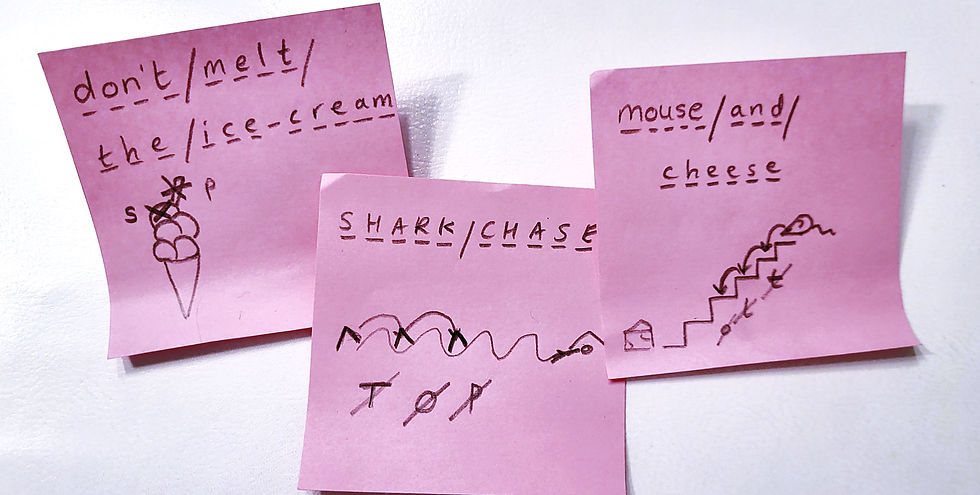 don't/melt/
the/ice-cream
S P
SHARK/CHASE
T O P
mouse/and/
cheese
o t t